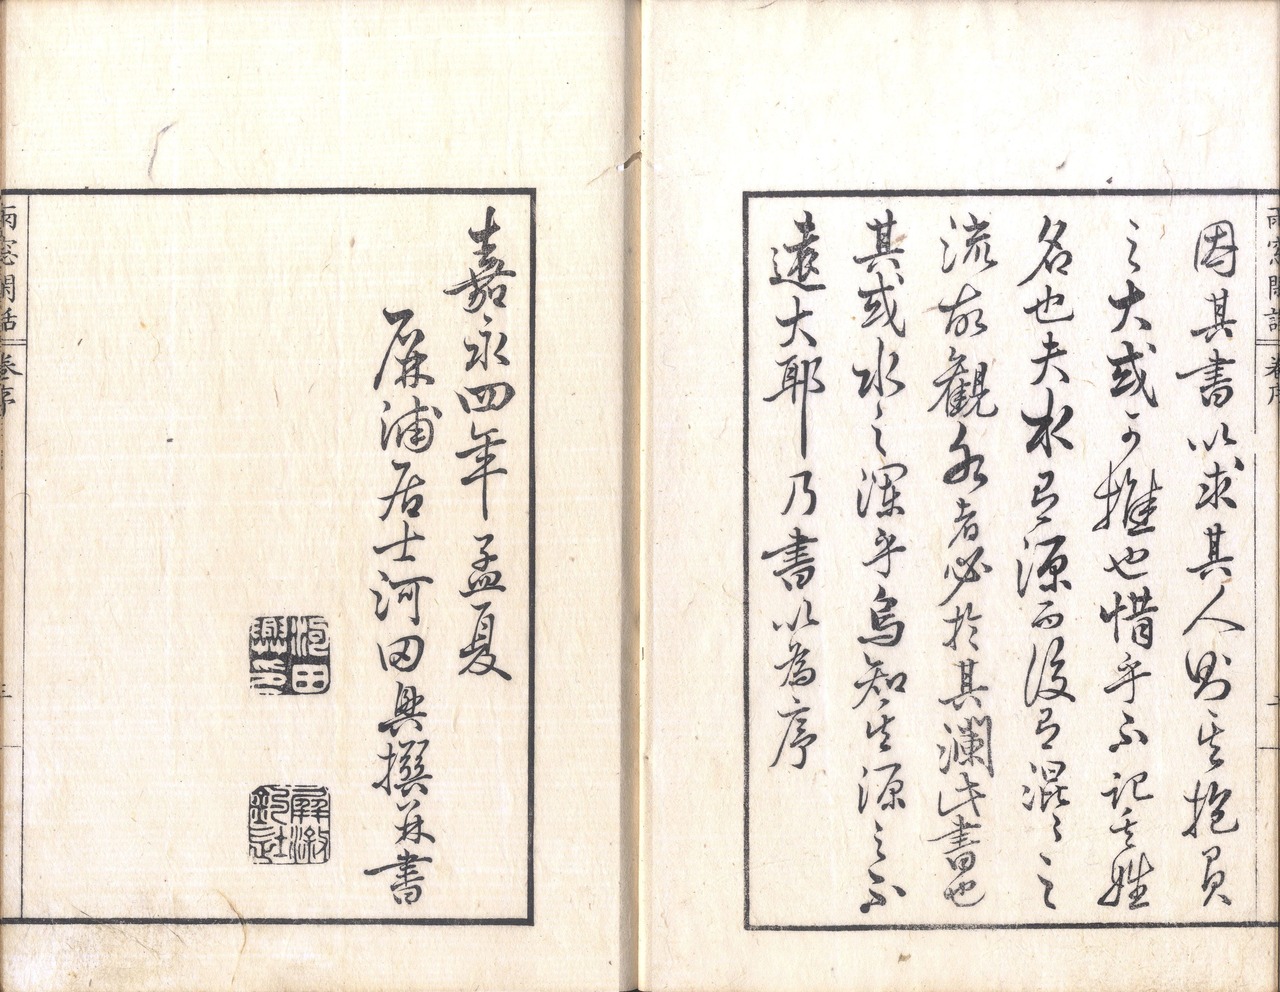 因其書以求其人則其抱負
之大或可推也惜乎不記其姓
名也夫水有源而後有混々之
流故觀水者必於其瀾此書也
其或水之渾乎烏知其源之不
遠大耶乃書以為序
嘉永四年孟夏
屏浦居士河田興撰并書
河田
興印
雨窓閑話 卷序